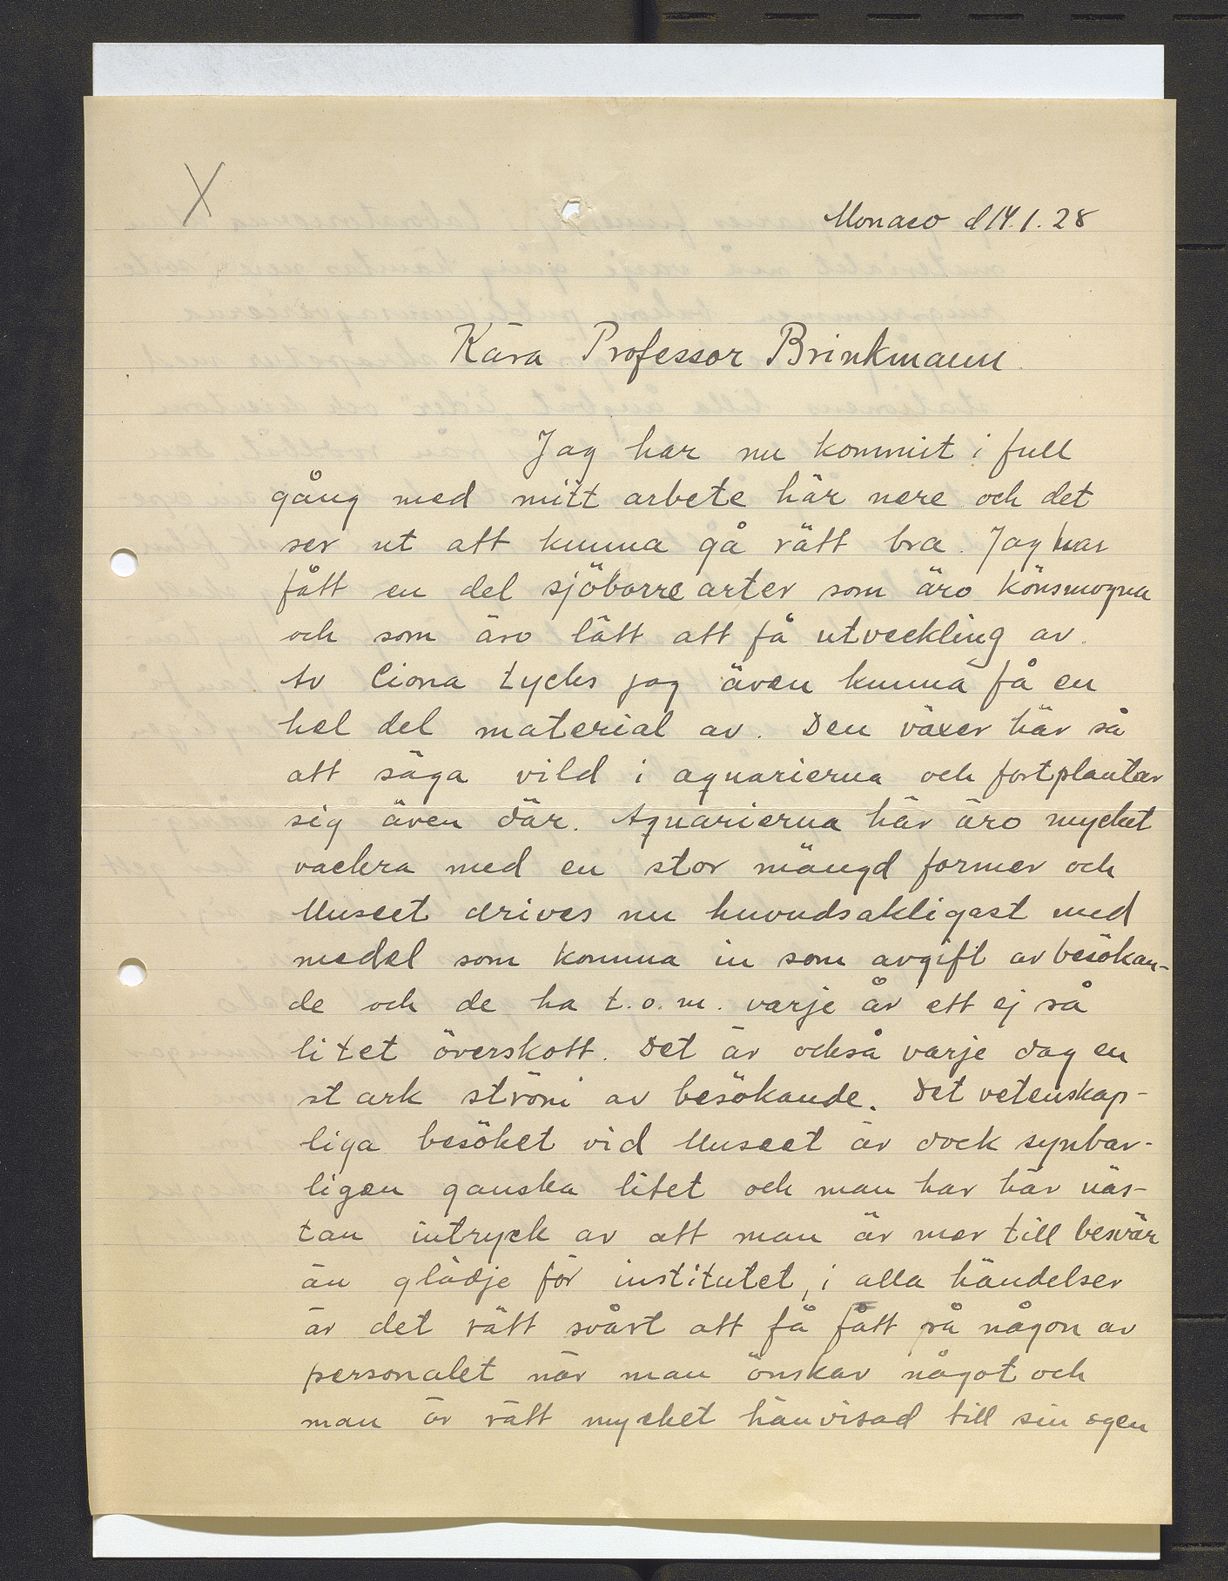 X
Monaco d 14.1.28
Kära Professor Brinkmann
Jag har nu kommit i full
gång med mitt arbete här nere och det
ser ut att kunna gå rätt bra. Jag har
fått en del sjöborrearter som äro könsmogna
och som äro lätt att få utveckling av.
Av Ciona tycks jag även kunna få en
hel del material av. Den växer här så
att säga vild i aquarierna och fortplantar
sig även där. Aquarierna här äro mycket
vackra med en stor mängd former och
Museet drives nu huvudsakligast med
medel som komma in som avgift av besökan-
de och de ha t.o.m. varje år ett ej så
litet överskott. Det är också varje dag en
stark ström av besökande. Det vetenskap-
liga besöket vid Museet är dock synbar-
ligen ganska litet och man har här näs-
tan intryck av att man är mer till besvär
än glädje för institutet, i alla händelser
är det rätt svårt att få fått på någon av
personalet när man önskar något och
man är rätt mycket hänvisad till sin egen